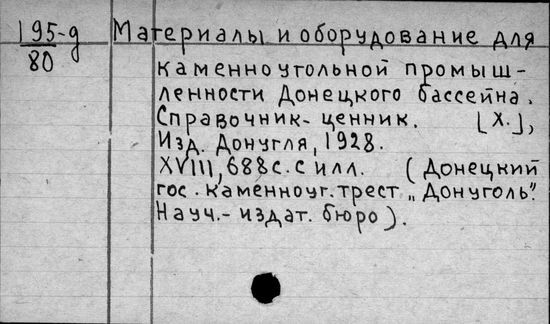 195-д
80
Материалы и оборудование для
каменноугольной промыш-
ленности Донецкого бассейна.
Справочник-ценник. [Х.],
Изд. Донугля, 1928.
XVIII, 688 с. с илл. (Донецкий
гос. каменноуг. трест „Донуголь".
Науч.-издат. бюро).